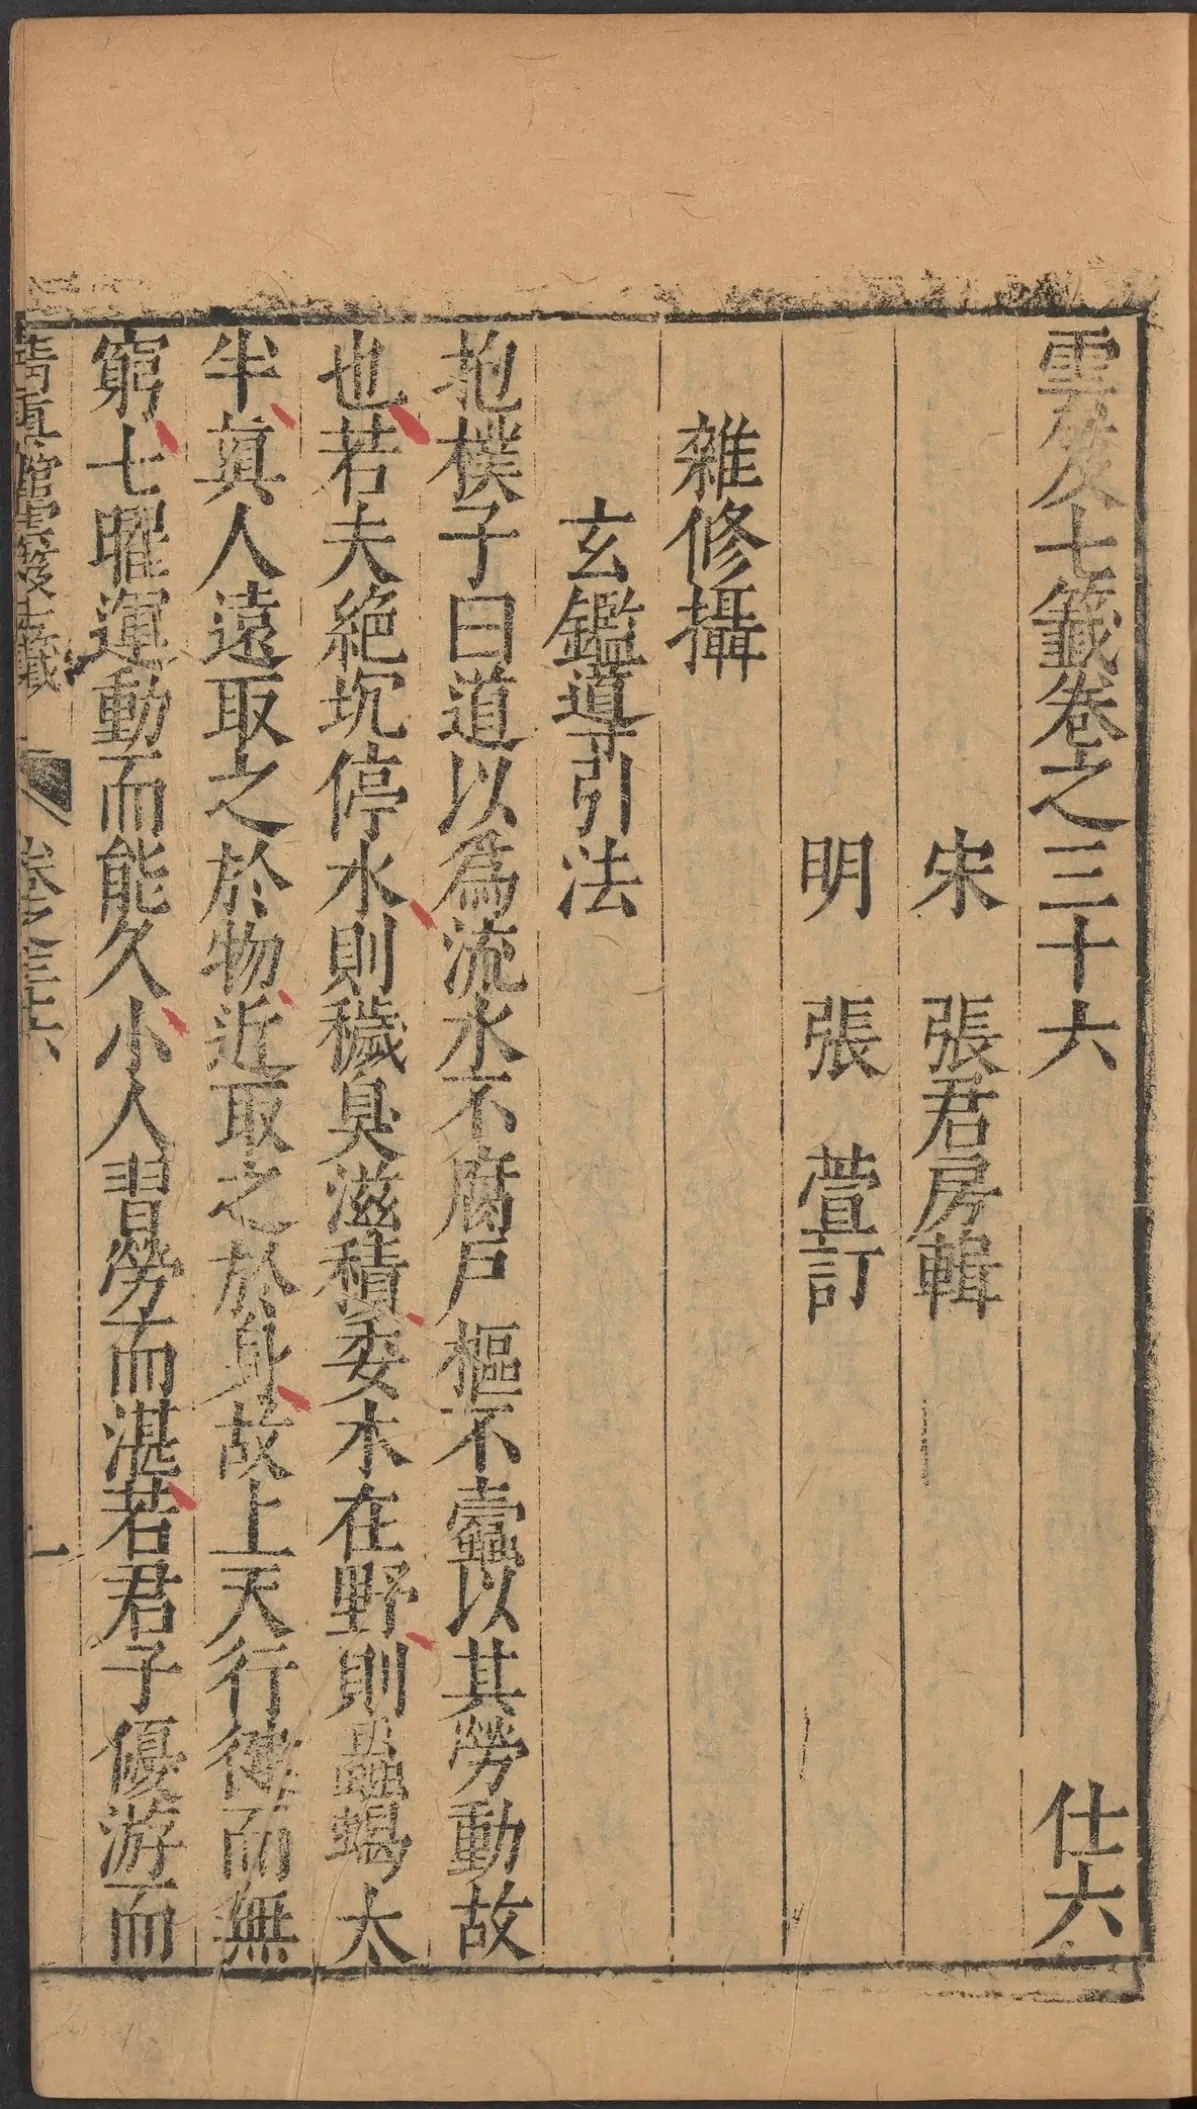 雲笈七籤卷之三十六 仕六
宋 張君房輯
明 張 萱訂
雜修攝
玄鑑導引法
抱樸子曰道以爲流水不腐戶樞不蠹以其勞動故
也若夫絶坑停水則穢臭滋積委木在野則蟲蝎太
半眞人遠取之於物近取之於身故上天行健而無
窮七曜運動而能久小人習勞而湛若君子優游而
清眞館雲笈七籤 卷之三十六 一